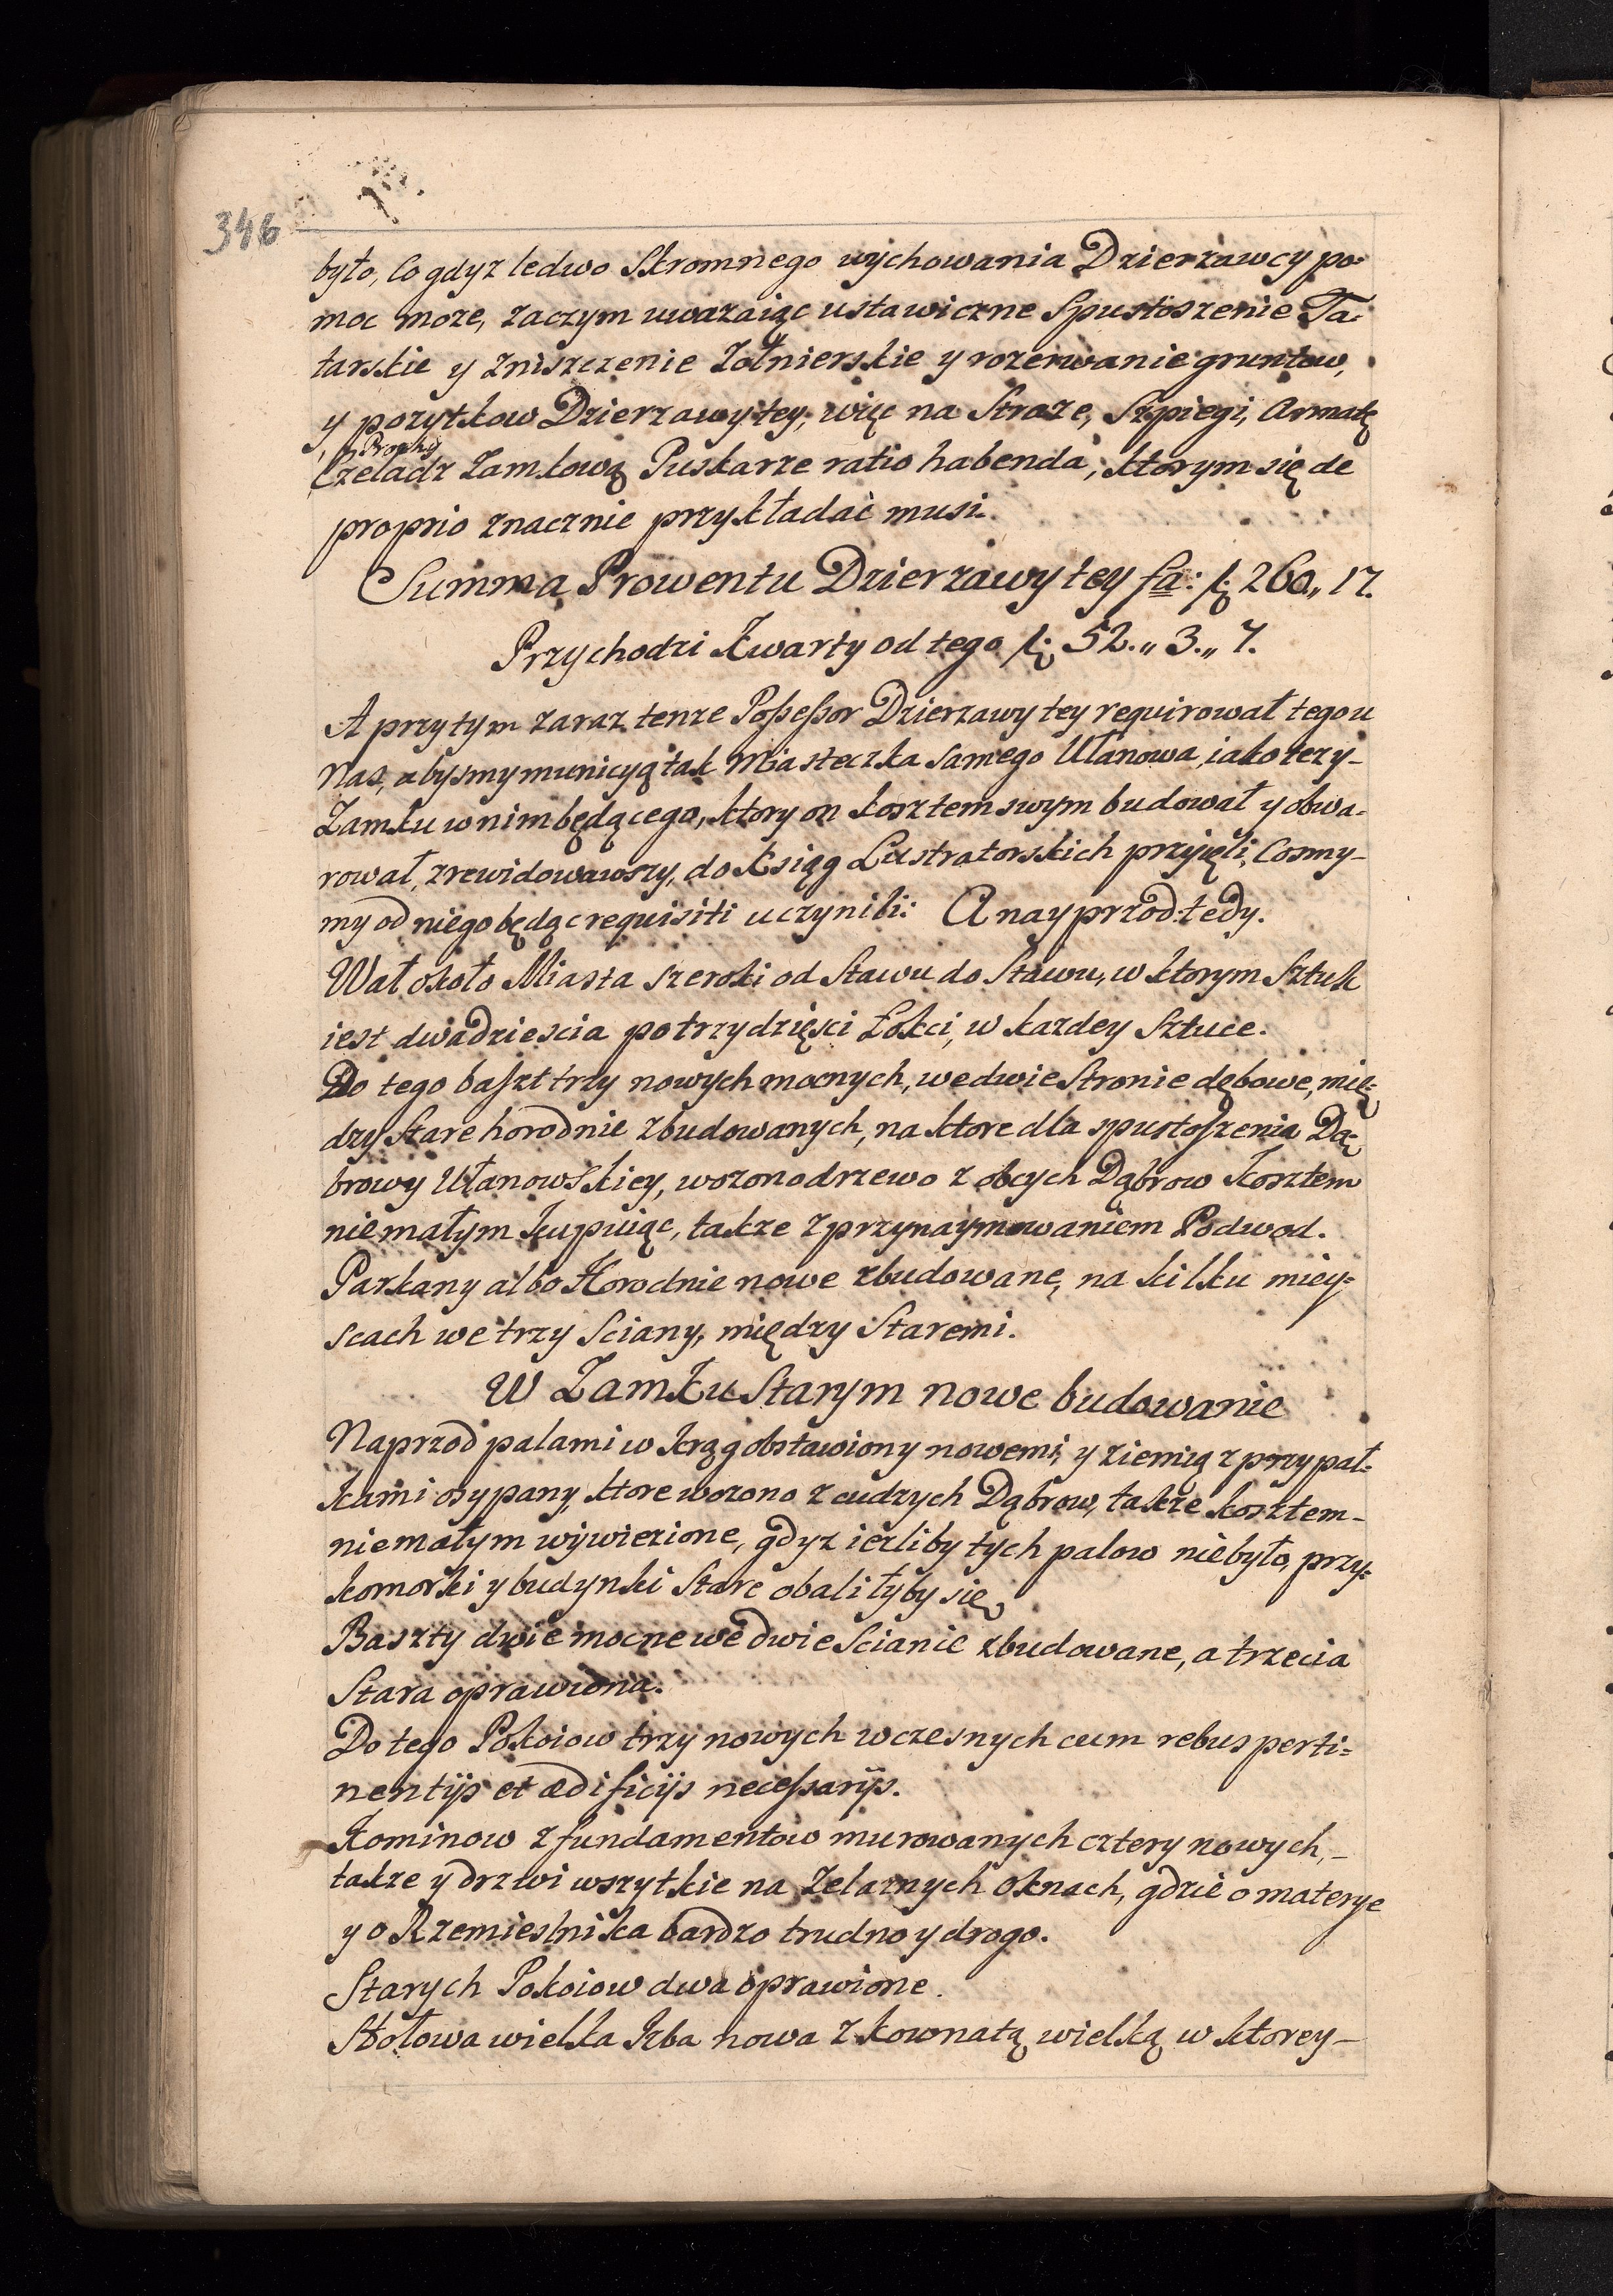 346
było, Co gdyz ledwo Skromnego wychowania Dzierzawcy po=
moc moze, zaczym uwazaiąc ustawiczne Spustoszenie Ta=
tarskie y zniszczenie Zołnierskie y rozerwanie gruntow,
y pozytkow Dzierzawy tey, więc na Straze, Szpiegi, Armatę
Prochy
Czeladz Zamkową Puskarze ratio habenda, ktorym się de
proprio znacznie przykładać musi.
Summa Prowentu Dzierzawy tey fa: 260,, 17.
Przychodzi Kwarty od tego 52.,, 3.,, 7.
A przy tym zaraz tenze Possessor Dzierzawy tey requirował tego u
Nas, abysmy municyą tak Miasteczka samego Ułanowa, iako tezy-
Zamku w nim będącego, ktory on kosztem swym budował y obwa=
rował, zrewidowawszy, do Ksiąg Lustratorskich przyięli, Cosmy-
my od niego będąc requisiti uczynili: A nayprzod tedy.
Wał około Miasta szeroki od Stawu do Stawu, w ktorym Sztuk
iest dwadziescia po trzydzięsci Łokci, w kazdey Sztuce.
Do tego baszt trzy nowych mocnych, we dwie Stronie dębowe, mię=
dzy Stare horodnie zbudowanych, na ktore dla spustoszenia Dą=
browy Ułanowskiey, wozono drzewo z obcych Dąbrow kosztem
niemałym kupuiąc, takze z przynaymowaniem Podwod.
Parkany albo Horodnie nowe zbudowane, na kilku miey=
scach we trzy Sciany, między Staremi.
W Zamku Starym nowe budowanie
Naprzod palami w krąg obstawiony nowemi, y ziemią z przypał=
kami osypany, ktore wozono z cudzych Dąbrow, takze kosztem-
niemałym wywiezione, gdyz iezliby tych palow niebyło, przy=
komorki y budynki Stare obaliłyby się,
Baszty dwie mocne we dwie Scianie zbudowane, a trzecia
Stara oprawiona.
Do tego Pokoiow trzy nowych wczesnych cum rebus perti=
nentijs et ædificijs necessarijs.
Kominow z fundamentow murowanych cztery nowych,-
takze y drzwi wszytkie na Zelaznych oknach, gdzie o materye
y o Rzemieslnika bardzo trudno y drogo.
Starych Pokoiow dwa oprawione.
Stołowa wielka Izba nowa z kownatą wielką w ktorey-